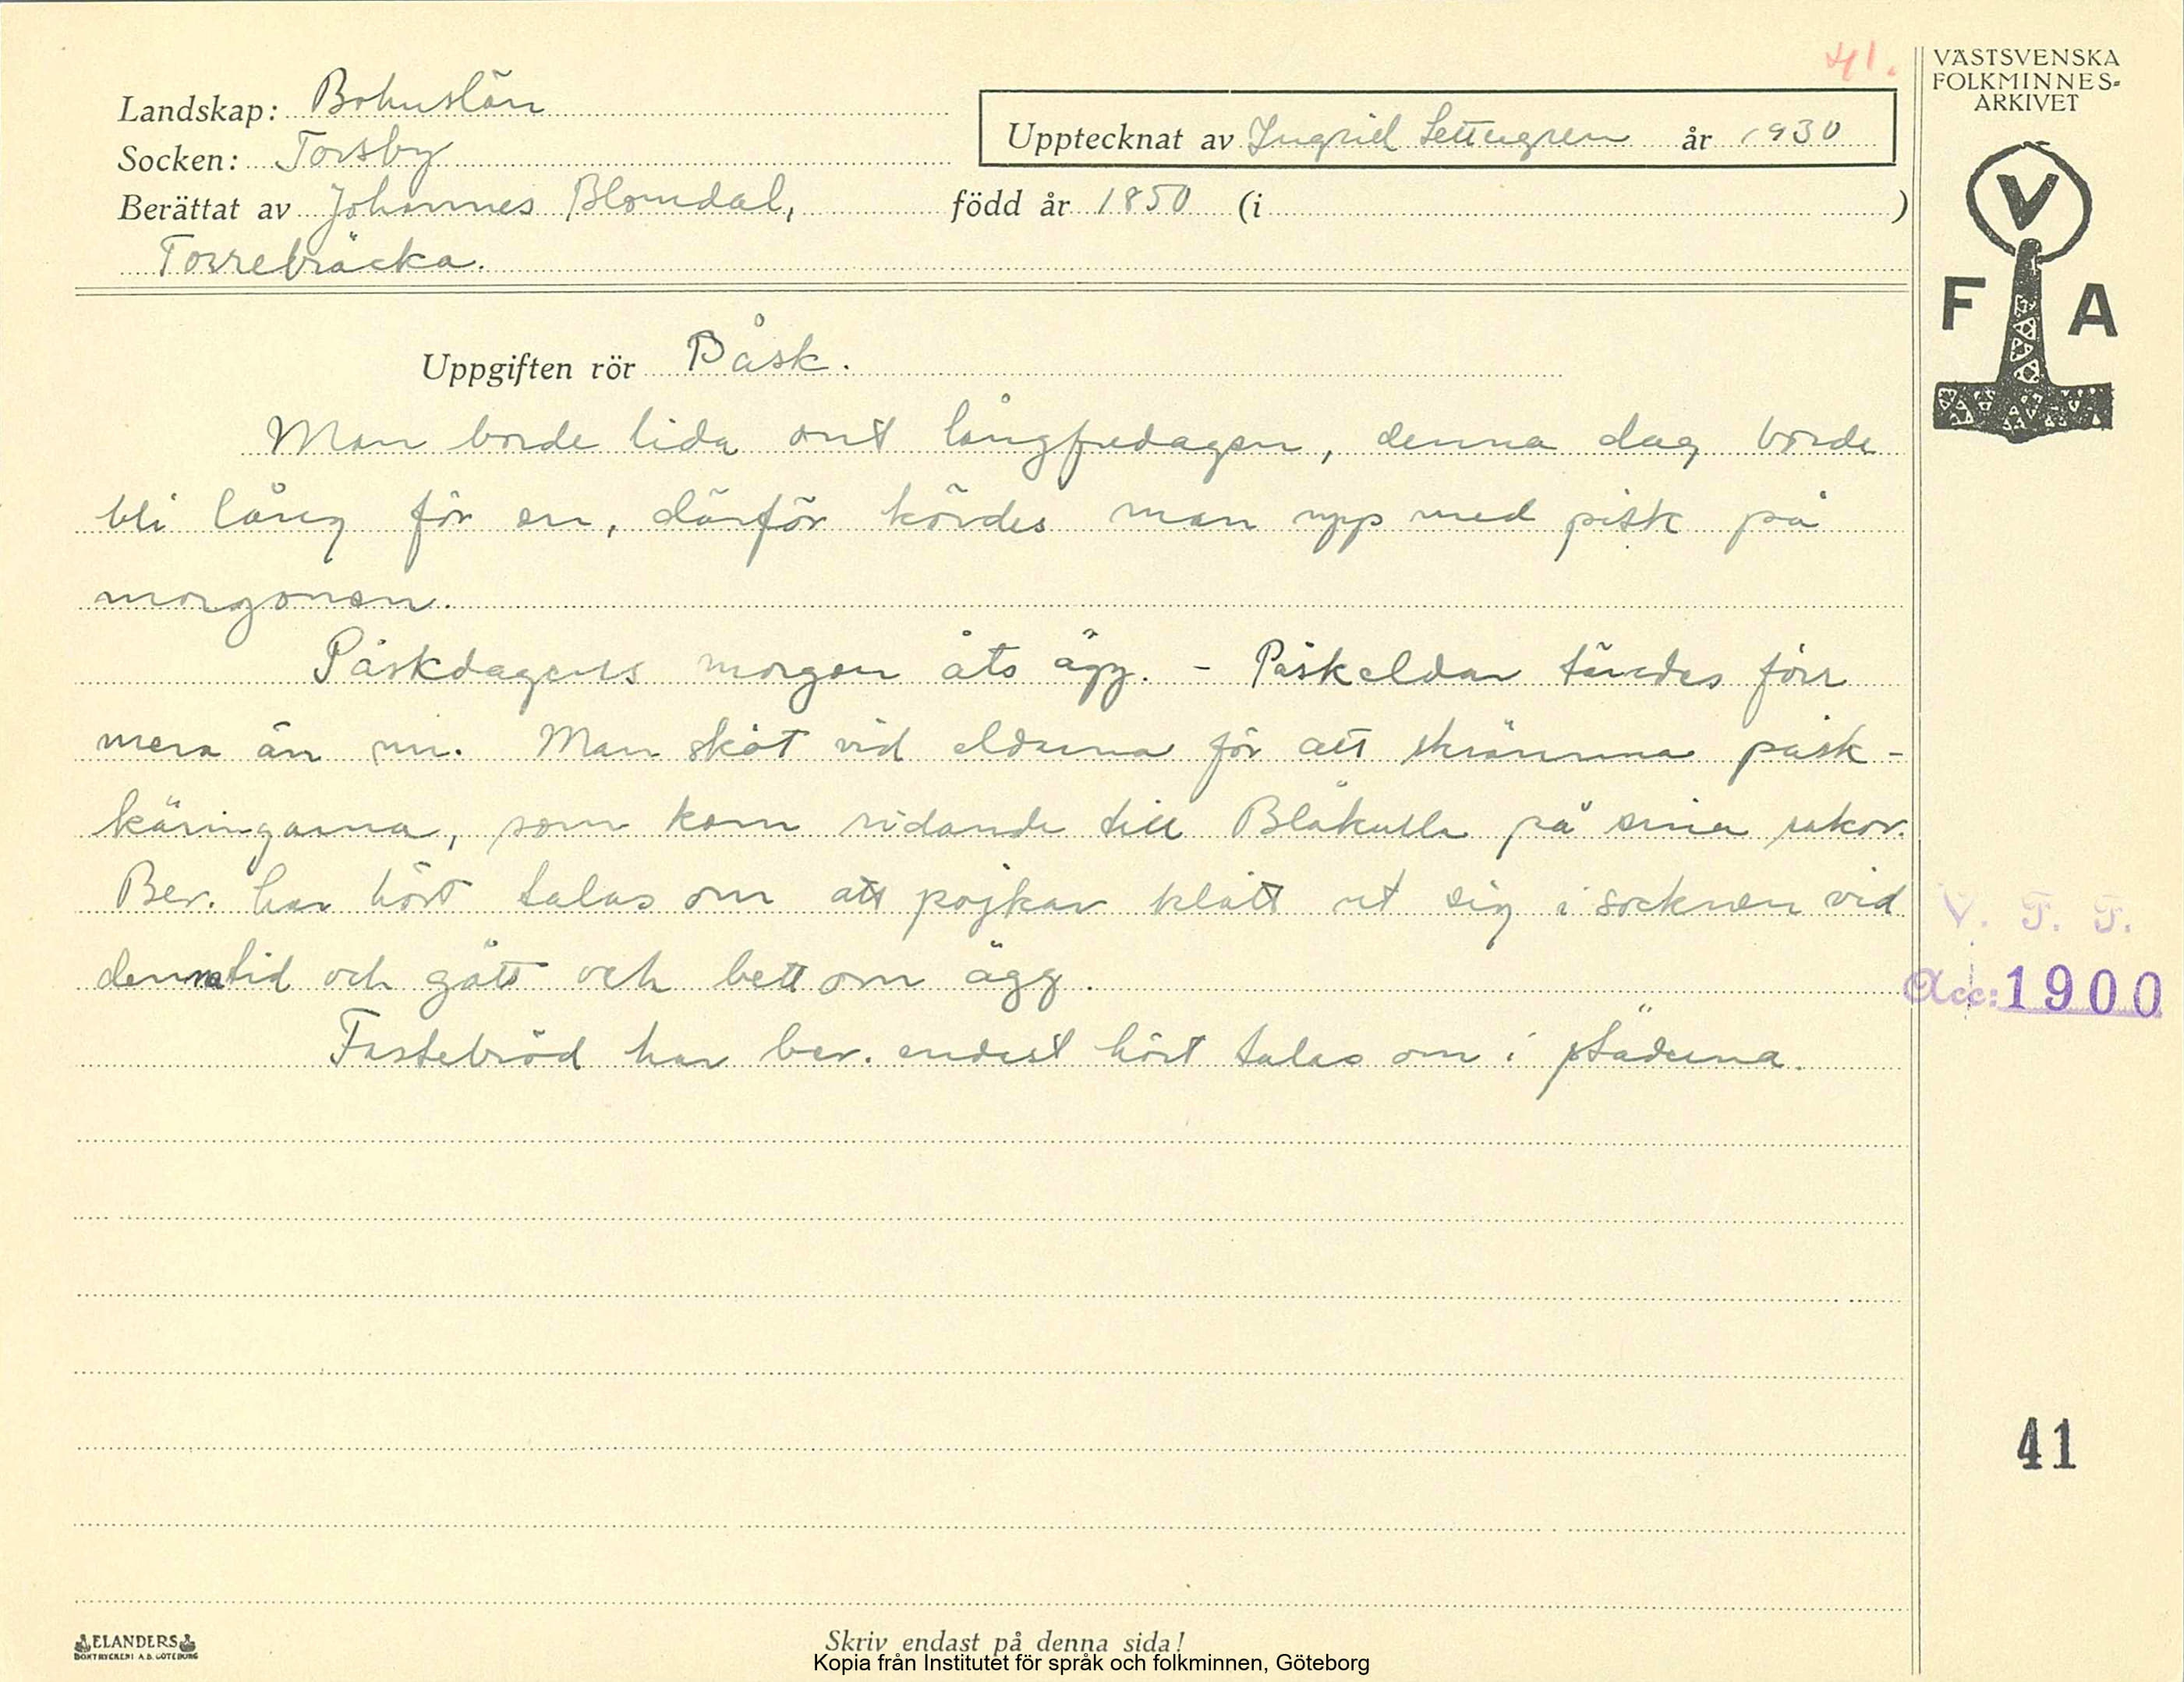 41.
VÄSTSVENSKA
FOLKMINNES-
ARKIVET
Landskap: Bohuslän
Socken: Torsby
Upptecknat av Ingrid Settergren år 1930
Berättat av Johannes Blomdal, född år 1850 (i )
Torrebräcka.
V
F A
Uppgiften rör Påsk.
Man borde lida ont långfredagen, denna dag borde
bli lång för en, därför kördes man upp med pisk på
morgonen.
Påskdagens morgon åts ägg. - Påskeldar tändes förr
mera än nu. Man sköt vid eldarna för att skrämma påsk-
käringarna, som kom ridande till Blåkulla på sina rakor.
Ber. har hört talas om att pojkar klätt ut sig i socknen vid
denna tid och gått och bett om ägg.
V. F. F.
Acc: 1900
Fastebröd har ber. endast hört talas om i städerna.
41
ELANDERS
BOKTRYCKERI A.B. GÖTEBORG
Skriv endast på denna sida!
Kopia från Institutet för språk och folkminnen, Göteborg